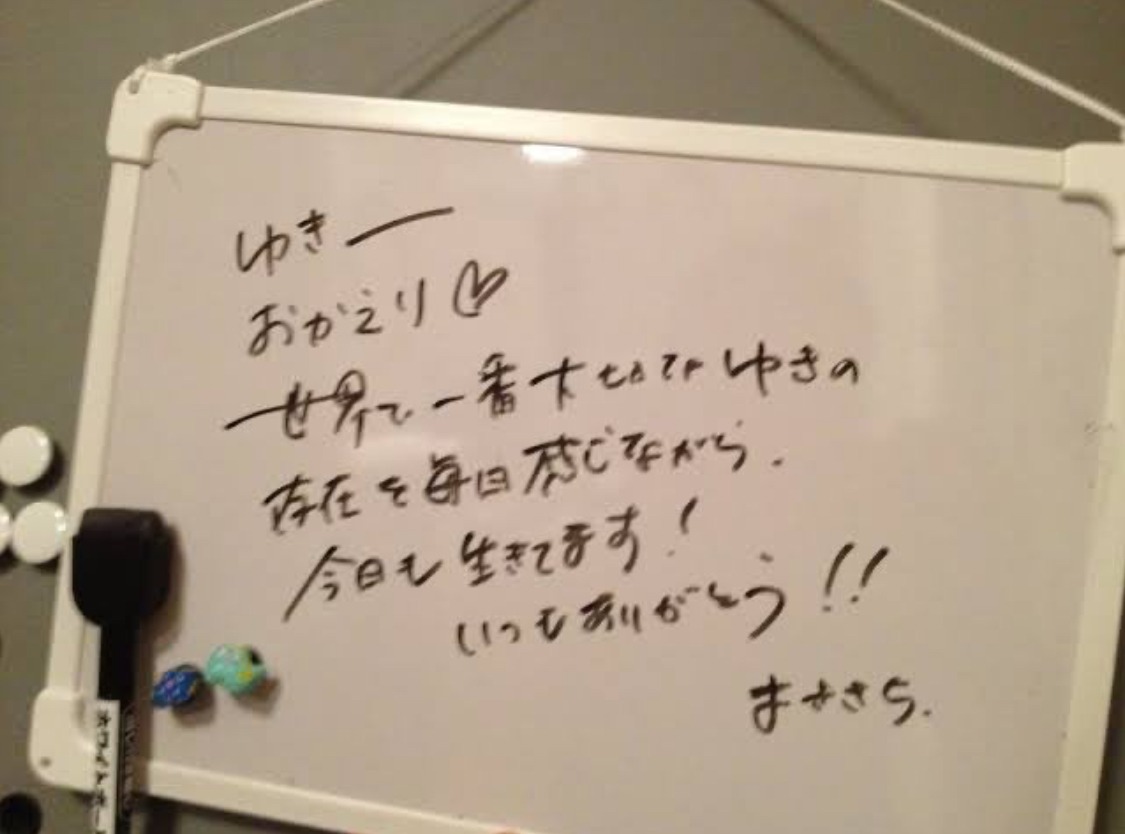 ゆきー
おかえり♡
世界で一番大切なゆきの
存在を毎日感じながら.
今日も生きてます!
いつもありがとう!!
まさきら.
ホワイトボー